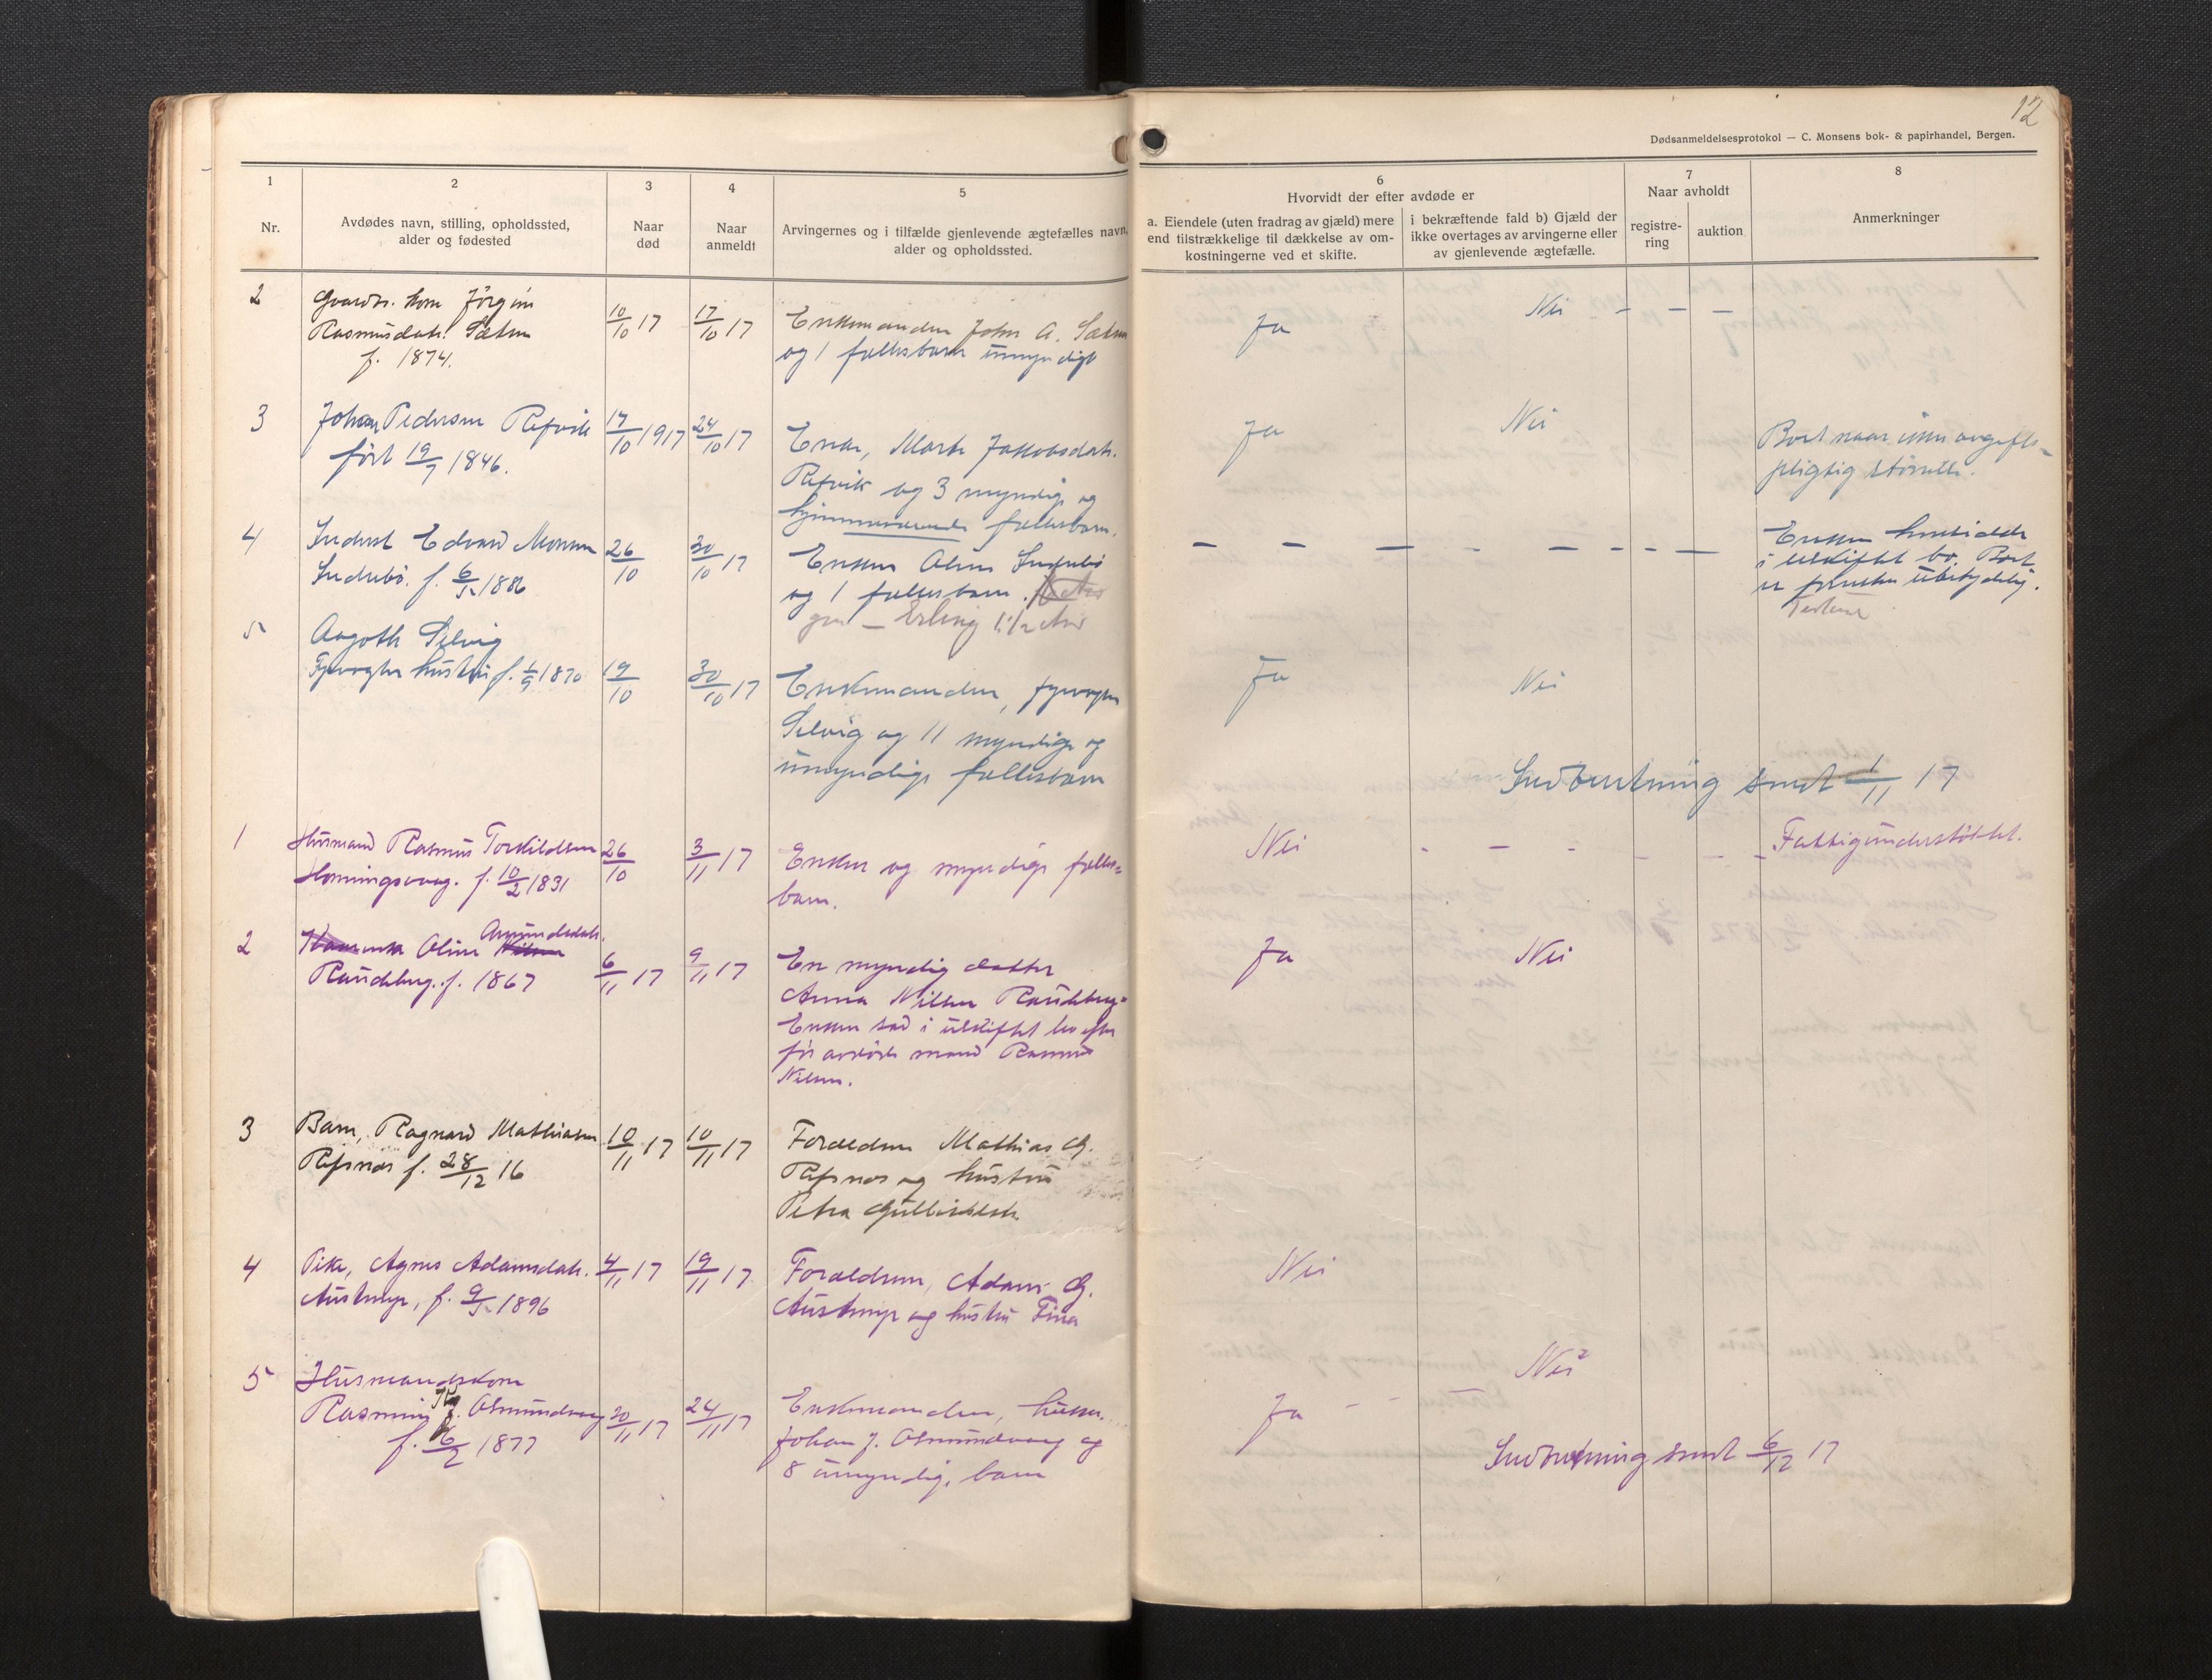 12
Dødsanmeldelsesprotokol — C. Monsens bok- & papirhandel, Bergen.
1
Nr.
2
Avdødes navn, stilling, opholdssted,
alder og fødested
3
Naar
død
4
Naar
anmeldt
5
Arvingernes og i tilfælde gjenlevende ægtefælles navn,
alder og opholdssted.
6
Hvorvidt der efter avdøde er
a. Eiendele (uten fradrag av gjæld) mere
end tilstrækkelige til dækkelse av om-
kostningerne ved et skifte.
i bekræftende fald b) Gjæld der
ikke overtages av arvingerne eller
av gjenlevende ægtefælle.
7
Naar avholdt
registre-
ring
auktion
8
Anmerkninger
2
Gaardbr. kone Jörgine
Rasmusdatr. Sætren
f. 1874.
10/10 17
17/10 17
Enkemanden John A. Sætren
og 1 fællesbarn umyndigt
Ja
Nei - - -
3
Johan Pedersen Refvik
föd 19/7 1846.
17/10 1917
24/10 17
Enke, Marte Jakobsdatr.
Refvik og 3 myndige og
hjemmeværende fællesbarn.
Ja
Nei
Boet naar ikke avgifts-
pligtig störrelse.
4
Inderst Edvard Monsen
Indrebö. f. 1886
26/10
30/10 17
Enken Oline Indrebö
og 1 fællesbarn.
Erling 1 1/2 Aar
— — — - — - - - —
Enken hensidder
i uskiftet bo. Boet
er ubetydelig.
5
Aagoth Selvig
Fyrvogter hustru f. 1/9 1870
19/10
30/10 17
Enkemanden, fyrvogter
Selvig og 11 myndige og
umyndige fællesbarn
Ja
Nei
Indberetning sendt 1/11 17
1
Husmand Rasmus Torkildsen
Honningsvaag. f. 10/2 1831
26/10
3/11 17
Enken og myndige fælles-
barn.
Nei
- - - - - -
Fattigunderstöttet.
2
Oline Amundsdatr.
Raudeberg. f. 1867
6/11 17
9/11 17
En myndig datter
Anna Nilsen Raudeberg-
Enken sad i uskiftet bo efter
för avdöde mand Rasmus
Nilsen.
Ja
Nei
3
Barn, Ragnard Mathiasen
Refsnes f. 28/12 16
10/11 17
10/11 17
Forældrene Mathias G.
Refsnes og hustru
Petra
4
Pike, Agnes Adamsdatr.
f. 1896
4/11 17
19/11 17
Forældrene, Adam G.
og hustru Fina
Nei
5
Husmandskone
Rasmine J. Osmundvaag
f. 6/2 1877
20/11 17
24/11 17
Enkemanden, husm.
Johan J. Osmundvaag og
8 umyndige barn
Ja - - —
Nei
Indberetning sendt 6/12 17